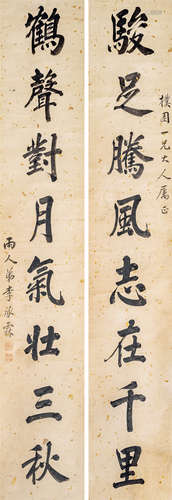 樸園一兄大人屬正
駿足騰風志在千里
鶴聲對月氣壯三秋
雨人弟李承霖